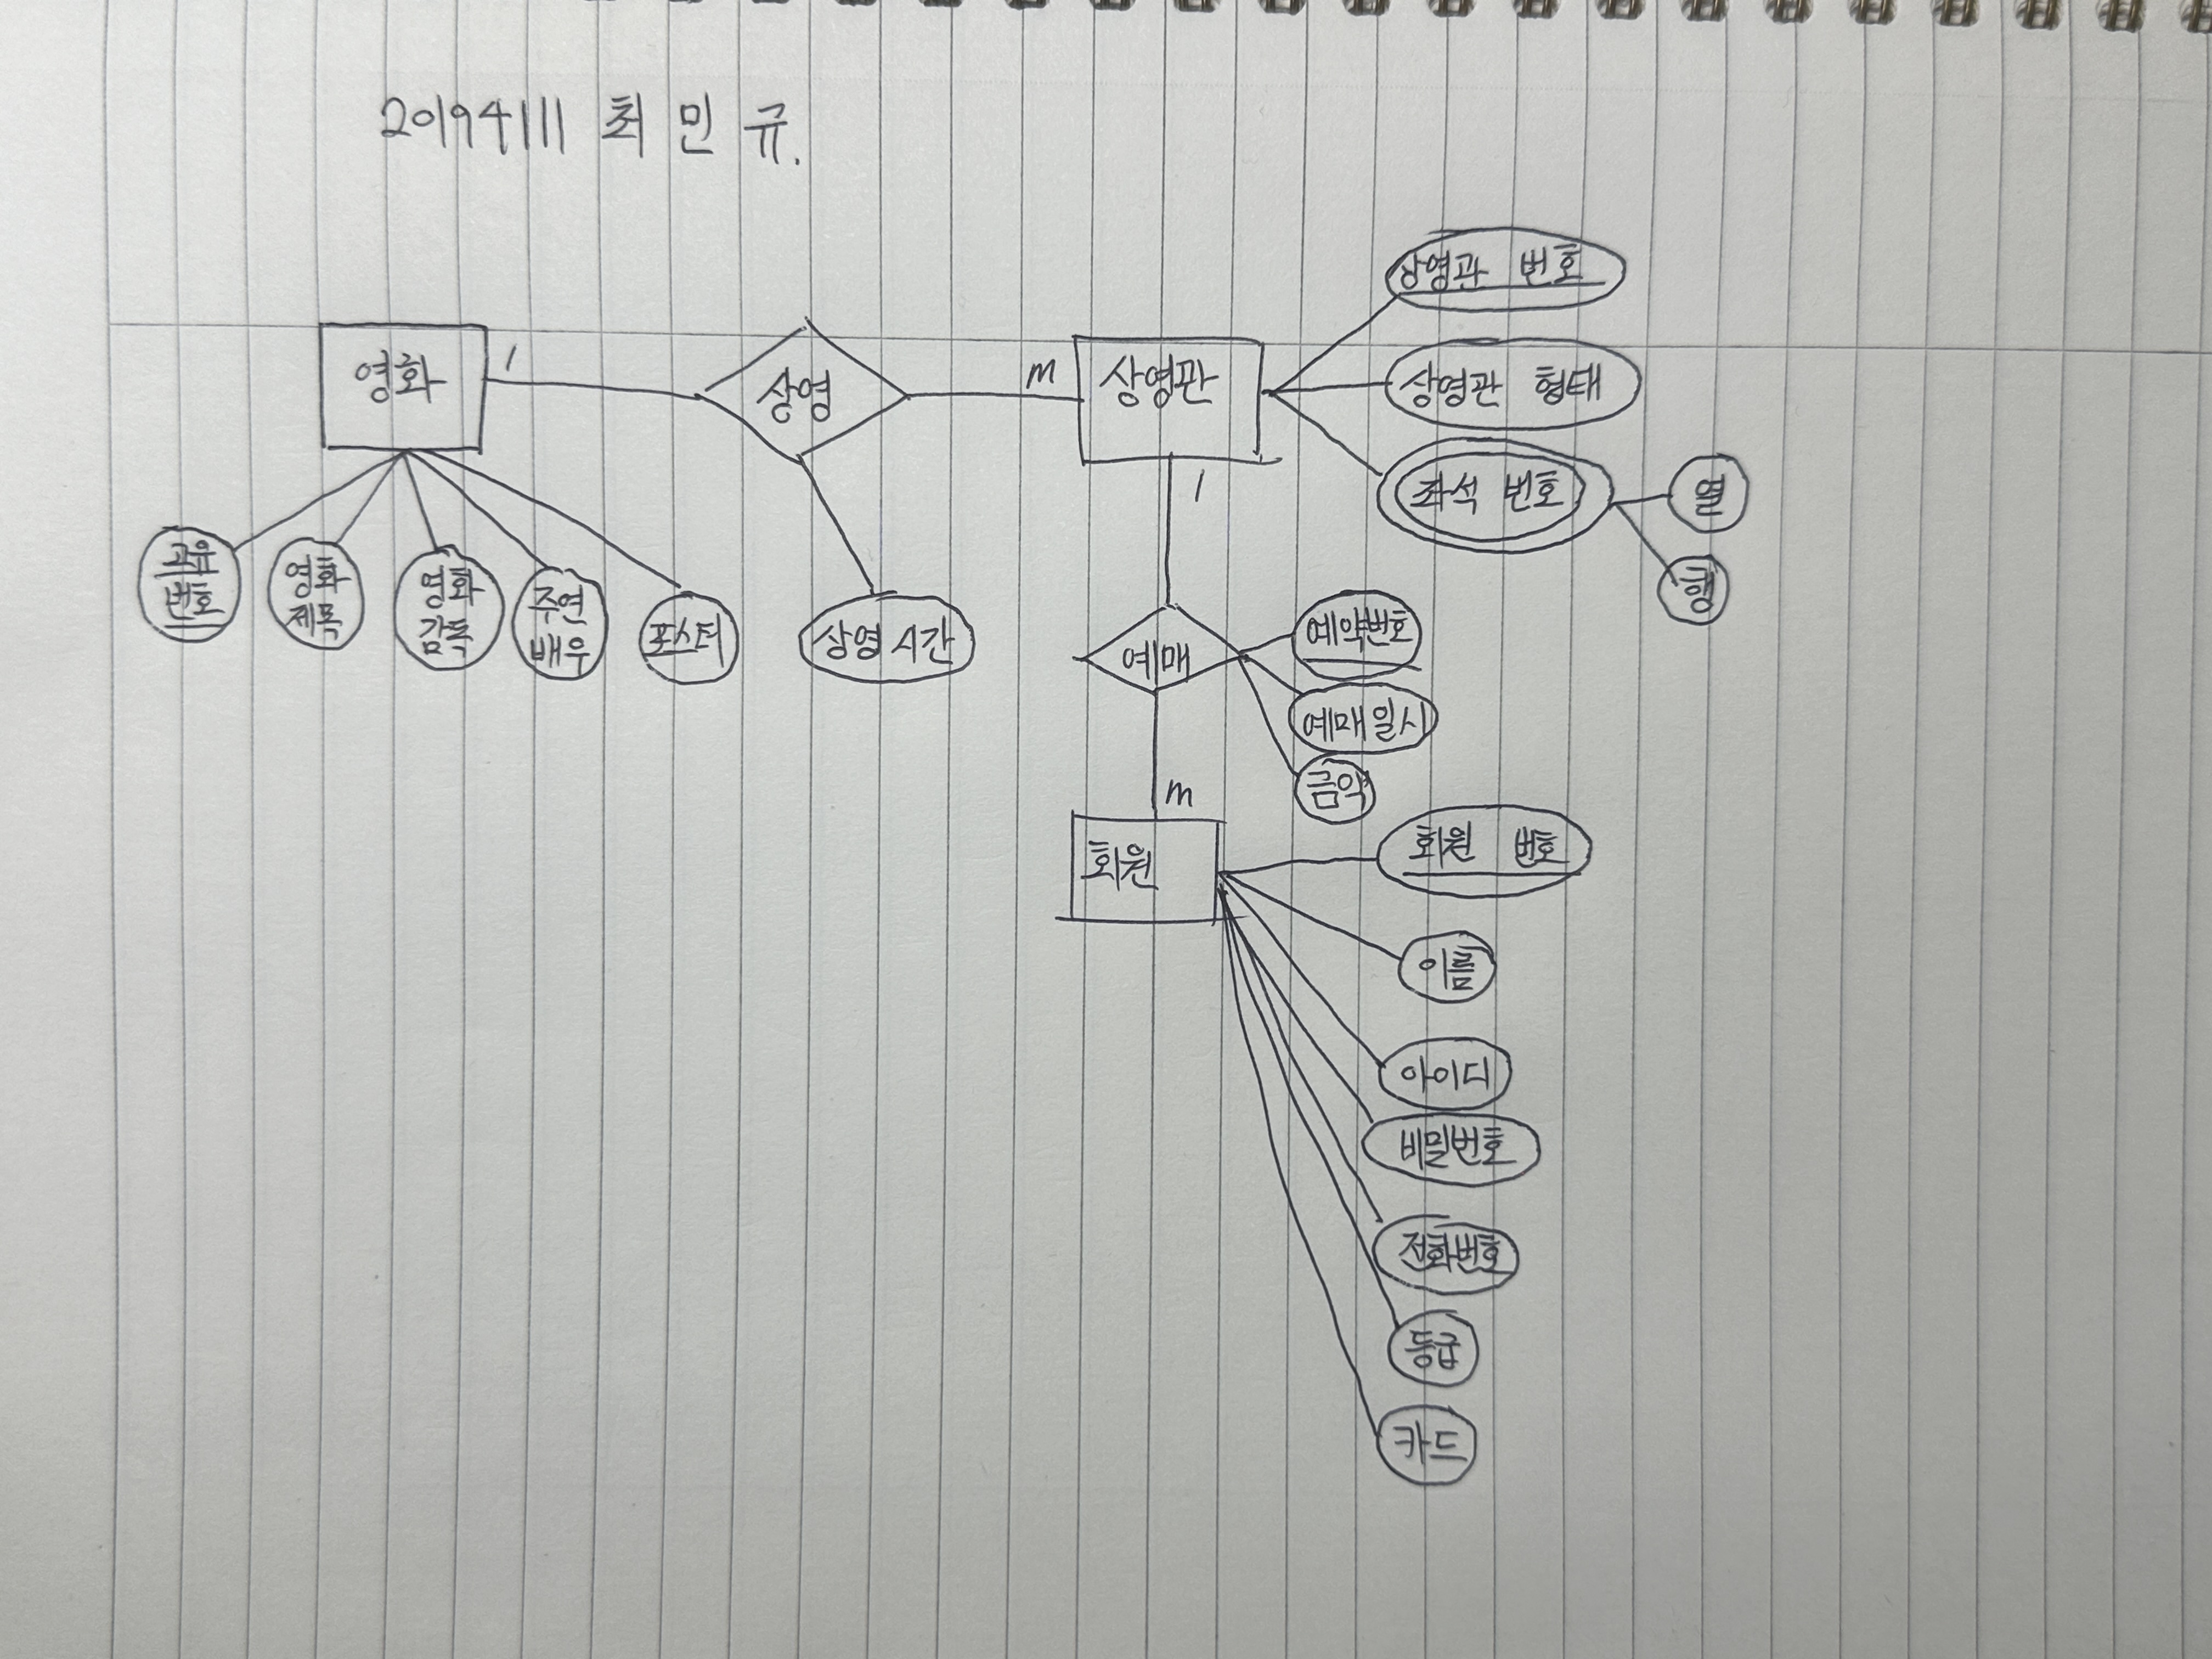 20194111 최민규.
상영관 번호
영화
1
상영
m
상영관
상영관 형태
1
좌석 번호
열
행
고유
번호
영화
제목
영화
감독
주연
배우
포스터
상영시간
예매
예약번호
예매일시
금액
m
회원
회원 번호
이름
아이디
비밀번호
전화번호
등급
카드